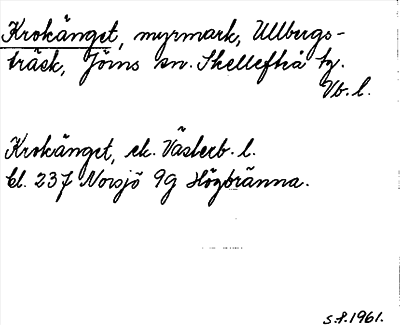 Krokänget, myrmark, Ullbergs-
träsk, Jörns sn. Skellefteå tg.
Vb. l.
Krokänget, ek. Västerb. l.
bl. 237 Norsjö 9g Högbränna.
s.f. 1961.